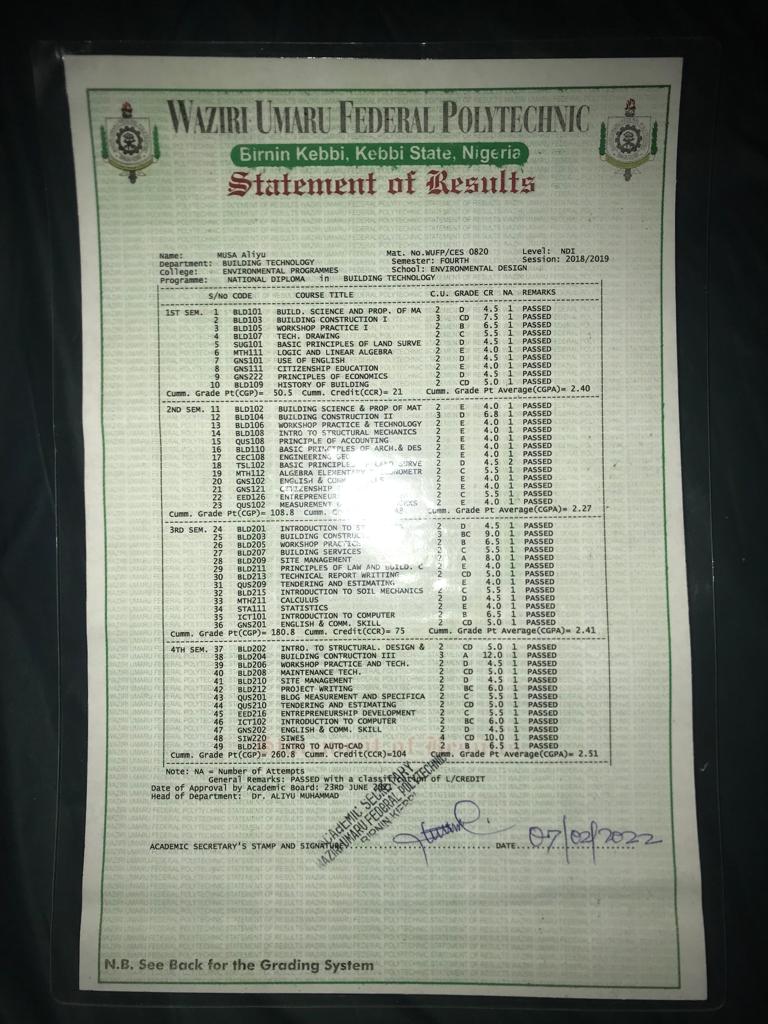 WAZIRI UMARU FEDERAL POLYTECHNIC
Birnin Kebbi, Kebbi State, Nigeria
Statement of Results
Name: MUSA Aliyu Mat. No.WUFP/CES 0820 Level: NDI
Department: BUILDING TECHNOLOGY Semester: FOURTH Session: 2018/2019
College: ENVIRONMENTAL PROGRAMMES School: ENVIRONMENTAL DESIGN
Programme: NATIONAL DIPLOMA in BUILDING TECHNOLOGY
S/No CODE COURSE TITLE C.U. GRADE CR NA REMARKS
1ST SEM. 1 BLD101 BUILD. SCIENCE AND PROP. OF MA 2 D 4.5 1 PASSED
2 BLD103 BUILDING CONSTRUCTION I 3 CD 7.5 1 PASSED
3 BLD105 WORKSHOP PRACTICE I 2 B 6.5 1 PASSED
4 BLD107 TECH. DRAWING 2 C 5.5 1 PASSED
5 SUG101 BASIC PRINCIPLES OF LAND SURVE 2 D 4.5 1 PASSED
6 MTH111 LOGIC AND LINEAR ALGEBRA 2 E 4.0 1 PASSED
7 GNS101 USE OF ENGLISH 2 D 4.5 1 PASSED
8 GNS111 CITIZENSHIP EDUCATION 2 E 4.0 1 PASSED
9 GNS222 PRINCIPLES OF ECONOMICS 2 D 4.5 1 PASSED
10 BLD109 HISTORY OF BUILDING 2 CD 5.0 1 PASSED
Cumm. Grade Pt(CGP)= 50.5 Cumm. Credit(CCR)= 21 Cumm. Grade Pt Average(CGPA)= 2.40
2ND SEM. 11 BLD102 BUILDING SCIENCE & PROP OF MAT 2 E 4.0 1 PASSED
12 BLD104 BUILDING CONSTRUCTION II 3 D 6.8 1 PASSED
13 BLD106 WORKSHOP PRACTICE & TECHNOLOGY 2 E 4.0 1 PASSED
14 BLD108 INTRO TO STRUCTURAL MECHANICS 2 E 4.0 1 PASSED
15 QUS108 PRINCIPLE OF ACCOUNTING 2 E 4.0 1 PASSED
16 BLD110 BASIC PRINCIPLES OF ARCH.& DES 2 E 4.0 1 PASSED
17 CEC108 ENGINEERING 2 E 4.0 1 PASSED
18 TSL102 BASIC PRINCIPLE LAND SURVE 2 D 4.5 2 PASSED
19 MTH112 ALGEBRA 2 C 5.5 1 PASSED
20 GNS102 ENGLISH & 2 E 4.0 1 PASSED
21 GNS121 CITIZENSHIP 2 E 4.0 1 PASSED
22 EED126 ENTREPRENEUR 2 C 5.5 1 PASSED
23 QUS102 MEASUREMENT 2 E 4.0 1 PASSED
Cumm. Grade Pt(CGP)= 108.8 Cumm. 48 Cumm. Grade Pt Average(CGPA)= 2.27
3RD SEM. 24 BLD201 INTRODUCTION TO 2 D 4.5 1 PASSED
25 BLD203 BUILDING 3 BC 9.0 1 PASSED
26 BLD205 WORKSHOP 2 B 6.5 1 PASSED
27 BLD207 BUILDING SERVICES 2 C 5.5 1 PASSED
28 BLD209 SITE MANAGEMENT 2 A 8.0 1 PASSED
29 BLD211 PRINCIPLES OF LAW AND BUILD. C 2 E 4.0 1 PASSED
30 BLD213 TECHNICAL REPORT WRITTING 2 CD 5.0 1 PASSED
31 QUS209 TENDERING AND ESTIMATING 2 E 4.0 1 PASSED
32 BLD215 INTRODUCTION TO SOIL MECHANICS 2 C 5.5 1 PASSED
33 MTH211 CALCULUS 2 D 4.5 1 PASSED
34 STA111 STATISTICS 2 E 4.0 1 PASSED
35 ICT101 INTRODUCTION TO COMPUTER 2 B 6.5 1 PASSED
36 GNS201 ENGLISH & COMM. SKILL 2 CD 5.0 1 PASSED
Cumm. Grade Pt(CGP)= 180.8 Cumm. Credit(CCR)= 75 Cumm. Grade Pt Average(CGPA)= 2.41
4TH SEM. 37 BLD202 INTRO. TO STRUCTURAL. DESIGN & 2 CD 5.0 1 PASSED
38 BLD204 BUILDING CONTRUCTION III 3 A 12.0 1 PASSED
39 BLD206 WORKSHOP PRACTICE AND TECH. 2 D 4.5 1 PASSED
40 BLD208 MAINTENANCE TECH. 2 CD 5.0 1 PASSED
41 BLD210 SITE MANAGEMENT 2 D 4.5 1 PASSED
42 BLD212 PROJECT WRITING 2 BC 6.0 1 PASSED
43 QUS201 BLDG MEASUREMENT AND SPECIFICA 2 C 5.5 1 PASSED
44 QUS210 TENDERING AND ESTIMATING 2 CD 5.0 1 PASSED
45 EED216 ENTREPRENEURSHIP DEVELOPMENT 2 C 5.5 1 PASSED
46 ICT102 INTRODUCTION TO COMPUTER 2 BC 6.0 1 PASSED
47 GNS202 ENGLISH & COMM. SKILL 2 D 4.5 1 PASSED
48 SIW220 SIWES 4 CD 10.0 1 PASSED
49 BLD218 INTRO TO AUTO-CAD 2 B 6.5 1 PASSED
Cumm. Grade Pt(CGP)= 260.8 Cumm. Credit(CCR)=104 Cumm. Grade Pt Average(CGPA)= 2.51
Note: NA = Number of Attempts
General Remarks: PASSED with a classification of L/CREDIT
Date of Approval by Academic Board: 23RD JUNE 2021
Head of Department: Dr. ALIYU MUHAMMAD
ACADEMIC SECRETARY
WAZIRI UMARU FEDERAL POLYTECHNIC
BIRNIN KEBBI
ACADEMIC SECRETARY'S STAMP AND SIGNATURE DATE 07/02/2022
N.B. See Back for the Grading System